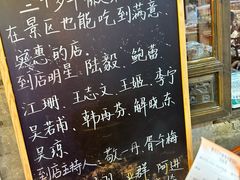 在景区也能吃到满意
实惠的店。
到店明星、陆毅、鲍蕾、
江珊、王志文、王姬、李宁
吴若甫、韩再芬、解晓东
吴琼、
到店主持人、敬一丹、肖晓梅
群、阿进